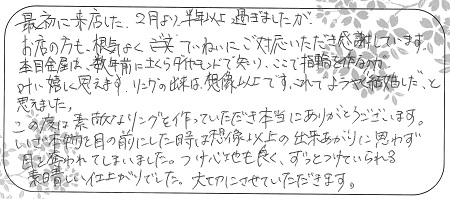 最初に来店した、2月より半年以上過ぎましたが、
お店の方も、根気よく ていねいにご対応いただき感謝しています。
本日金属は、数年前に立くらダイヤモンドで知り、ここで指輪を作るのが
叶い嬉しく思えます。リングの出来は、想像以上です。これでようやく結婚した、と
思えました。
この度は素敵なリングを作っていただき本当にありがとうございます。
いざ本物を目の前にした時は想像以上の出来あがりに思わず
目を奪われてしまいました。つけ心地も良く、ずっとつけていられる
素晴しい仕上がりでした。大切にさせていただきます。